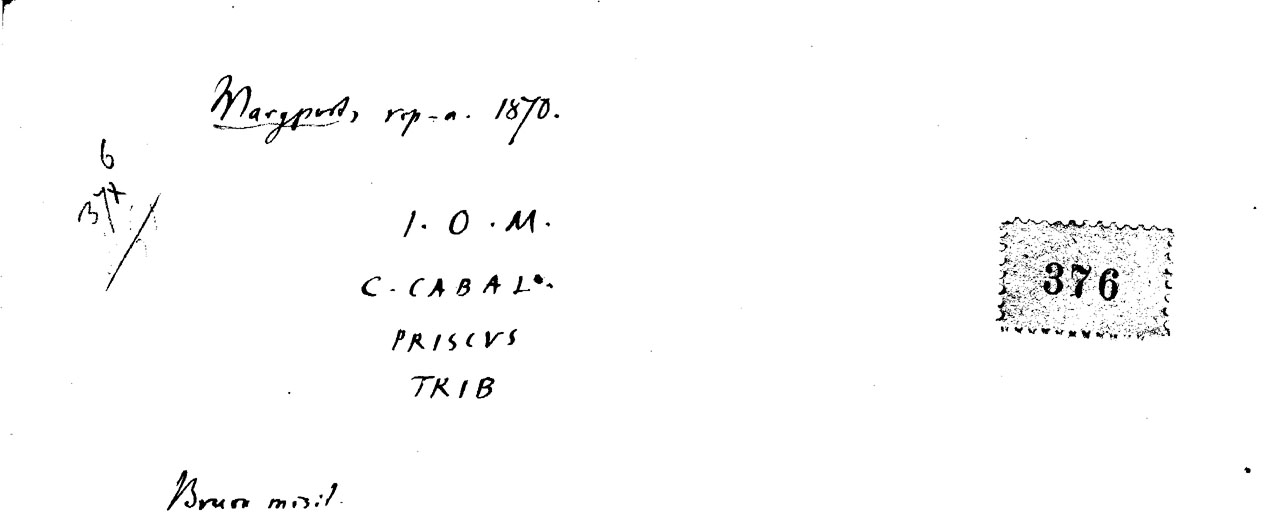 Maryport, rep-a. 1870.
6
I. O. M.
376
C. CABAL.
PRISCVS
TRIB
Bruce misit.